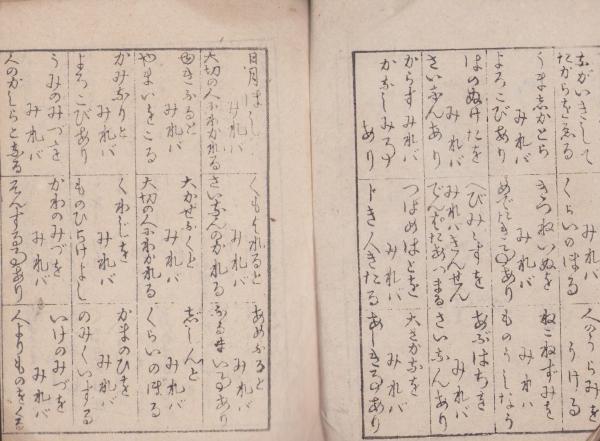 しがいきして
たからをゑる
みれバ
くらいのぼる
人のうらみを
うける
うま志かとら
みれバ
よろこびあり
きつねいぬを
みれバ
めでたき事あり
ねこねずみを
みれバ
ものうしなう
はのぬけたを
みれバ
さいなんあり
へびみゝずを
みれバきんせん
あつまる
あぶはちを
みれバ
さいなんあり
からすみれバ
かなしみ事
あり
つばめはとを
みれバ
人きたる
大さかなを
みれバ
あしき事あり
日月
みれバ
大切の人にわかれる
くもはれると
みれバ
さいなんのがれる
あめふると
みれバ
ふるまい事あり
ゆきふると
みれバ
やまいをこる
大かぜふくと
みれバ
大切の人にわかれる
ぢしんと
みれバ
くらいのぼる
かみなりと
みれバ
よろこびあり
くわじを
みれバ
ものひらけよし
かまのひを
みれバ
のみくいする
うみのみづを
みれバ
人のかしらとなる
かわのみづを
みれバ
そんする事あり
いけのみづを
みれバ
人よりものをくる